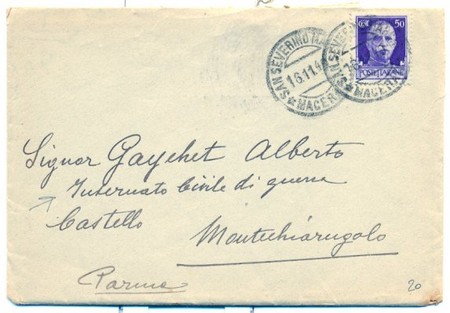 SAN SEVERINO MA
16.11.4
★ MACER
SAN SEVER
★ MACERA
CENT. 50
POSTE ITALIANE
Signor Gaychet Alberto
Internato Civile di guerra
Castello
Montechiarugolo
Parma
20